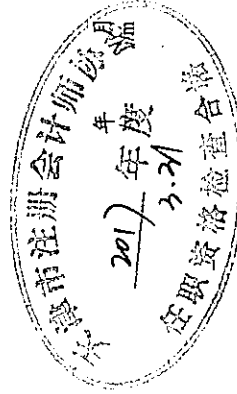 天津市注册会计师协
年度
3.21
任职资格检查合格